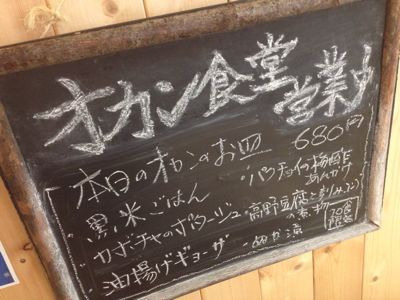 オカン食堂 営業中
本日のオカンのお皿 680円
・黒米ごはん
・カボチャのポタージュ
・油揚げギョーザ
・パクチョイの梅酢あんかけ
・高野豆腐と
の煮物
・ぬか漬
20食
限定